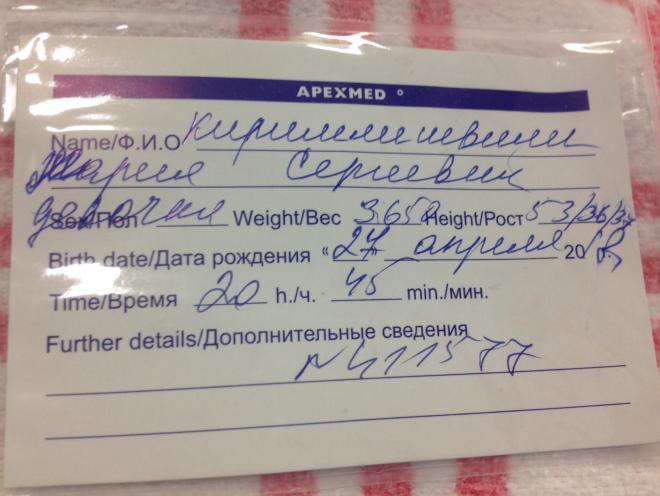 APEXMED
Name/Ф.И.О
Мария Сергеевич
Sex/Пол девочка Weight/Вес 3650 Height/Рост 53/36/34
Birth date/Дата рождения «27» апреля 20
Time/Время 20 h./ч. 45 min./мин.
Further details/Дополнительные сведения
N411577